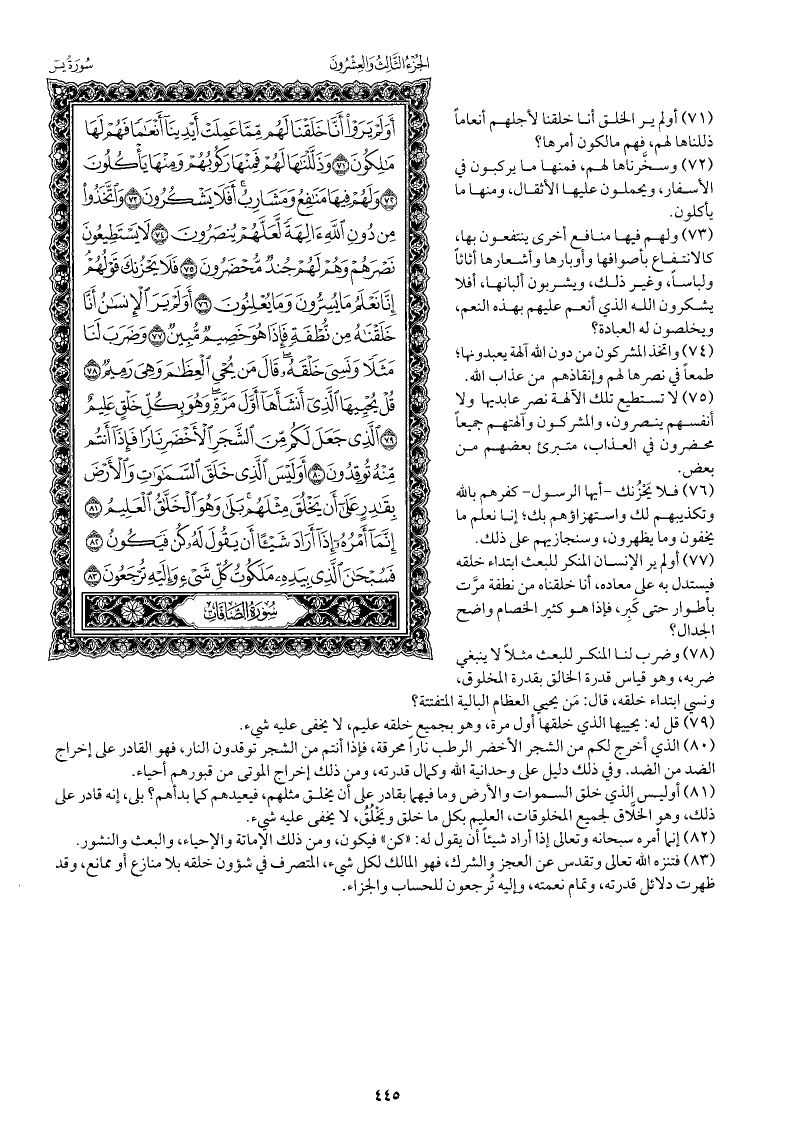 الجزء الثالث والعشرون
سورة يس
أَوَلَمْ يَرَوْا أَنَّا خَلَقْنَا لَهُم مِّمَّا عَمِلَتْ أَيْدِينَا أَنْعَامًا فَهُمْ لَهَا
مَالِكُونَ ٧١ وَذَلَّلْنَاهَا لَهُمْ فَمِنْهَا رَكُوبُهُمْ وَمِنْهَا يَأْكُلُونَ
٧٢ وَلَهُمْ فِيهَا مَنَافِعُ وَمَشَارِبُ أَفَلَا يَشْكُرُونَ ٧٣ وَاتَّخَذُوا
مِن دُونِ اللَّهِ ءَالِهَةً لَّعَلَّهُمْ يُنصَرُونَ ٧٤ لَا يَسْتَطِيعُونَ
نَصْرَهُمْ وَهُمْ لَهُمْ جُندٌ مُّحْضَرُونَ ٧٥ فَلَا يَحْزُنكَ قَوْلُهُمْ
إِنَّا نَعْلَمُ مَا يُسِرُّونَ وَمَا يُعْلِنُونَ ٧٦ أَوَلَمْ يَرَ الْإِنسَانُ أَنَّا
خَلَقْنَاهُ مِن نُّطْفَةٍ فَإِذَا هُوَ خَصِيمٌ مُّبِينٌ ٧٧ وَضَرَبَ لَنَا
مَثَلًا وَنَسِيَ خَلْقَهُ قَالَ مَن يُحْيِ الْعِظَامَ وَهِيَ رَمِيمٌ ٧٨
قُلْ يُحْيِيهَا الَّذِي أَنشَأَهَا أَوَّلَ مَرَّةٍ وَهُوَ بِكُلِّ خَلْقٍ عَلِيمٌ
٧٩ الَّذِي جَعَلَ لَكُم مِّنَ الشَّجَرِ الْأَخْضَرِ نَارًا فَإِذَا أَنتُم
مِّنْهُ تُوقِدُونَ ٨٠ أَوَلَيْسَ الَّذِي خَلَقَ السَّمَاوَاتِ وَالْأَرْضَ
بِقَادِرٍ عَلَى أَن يَخْلُقَ مِثْلَهُم بَلَى وَهُوَ الْخَلَّاقُ الْعَلِيمُ ٨١
إِنَّمَا أَمْرُهُ إِذَا أَرَادَ شَيْئًا أَن يَقُولَ لَهُ كُن فَيَكُونُ ٨٢
فَسُبْحَانَ الَّذِي بِيَدِهِ مَلَكُوتُ كُلِّ شَيْءٍ وَإِلَيْهِ تُرْجَعُونَ ٨٣
سورة الصافات
(٧١) أولم ير الخلق أنا خلقنا لأجلهم أنعاماً
ذللناها لهم، فهم مالكون أمرها؟
(٧٢) وسخَّرناها لهم، فمنها ما يركبون في
الأسفار، ويحملون عليها الأثقال، ومنها ما
يأكلون.
(٧٣) ولهم فيها منافع أخرى ينتفعون بها،
كالانتفاع بأصوافها وأوبارها وأشعارها أثاثاً
ولباساً، وغير ذلك، ويشربون ألبانها، أفلا
يشكرون الله الذي أنعم عليهم بهذه النعم،
ويخلصون له العبادة؟
(٧٤) واتخذ المشركون من دون الله آلهة يعبدونها؛
طمعاً في نصرها لهم وإنقاذهم من عذاب الله.
(٧٥) لا تستطيع تلك الآلهة نصر عابديها ولا
أنفسهم ينصرون، والمشركون وآلهتهم جميعاً
محضرون في العذاب، متبرئ بعضهم من
بعض.
(٧٦) فلا يَحْزُنك -أيها الرسول- كفرهم بالله
وتكذيبهم لك واستهزاؤهم بك؛ إنا نعلم ما
يخفون وما يظهرون، وسنجازيهم على ذلك.
(٧٧) أولم ير الإنسان المنكر للبعث ابتداء خلقه
فيستدل به على معاده، أنا خلقناه من نطفة مرَّت
بأطوار حتى كَبِر، فإذا هو كثير الخصام واضح
الجدال؟
(٧٨) وضرب لنا المنكر للبعث مثلاً لا ينبغي
ضربه، وهو قياس قدرة الخالق بقدرة المخلوق،
ونسي ابتداء خلقه، قال: مَن يحيي العظام البالية المتفتتة؟
(٧٩) قل له: يحييها الذي خلقها أول مرة، وهو بجميع خلقه عليم، لا يخفى عليه شيء.
(٨٠) الذي أخرج لكم من الشجر الأخضر الرطب ناراً محرقة، فإذا أنتم من الشجر توقدون النار، فهو القادر على إخراج
الضد من الضد. وفي ذلك دليل على وحدانية الله وكمال قدرته، ومن ذلك إخراج الموتى من قبورهم أحياء.
(٨١) أوليس الذي خلق السموات والأرض وما فيهما بقادر على أن يخلق مثلهم، فيعيدهم كما بدأهم؟ بلى، إنه قادر على
ذلك، وهو الخلَّاق لجميع المخلوقات، العليم بكل ما خلق ويَخْلُقُ، لا يخفى عليه شيء.
(٨٢) إنما أمره سبحانه وتعالى إذا أراد شيئاً أن يقول له: «كن» فيكون، ومن ذلك الإماتة والإحياء، والبعث والنشور.
(٨٣) فتنزه الله تعالى وتقدس عن العجز والشرك، فهو المالك لكل شيء، المتصرف في شؤون خلقه بلا منازع أو ممانع، وقد
ظهرت دلائل قدرته، وتمام نعمته، وإليه تُرجعون للحساب والجزاء.
٤٤٥